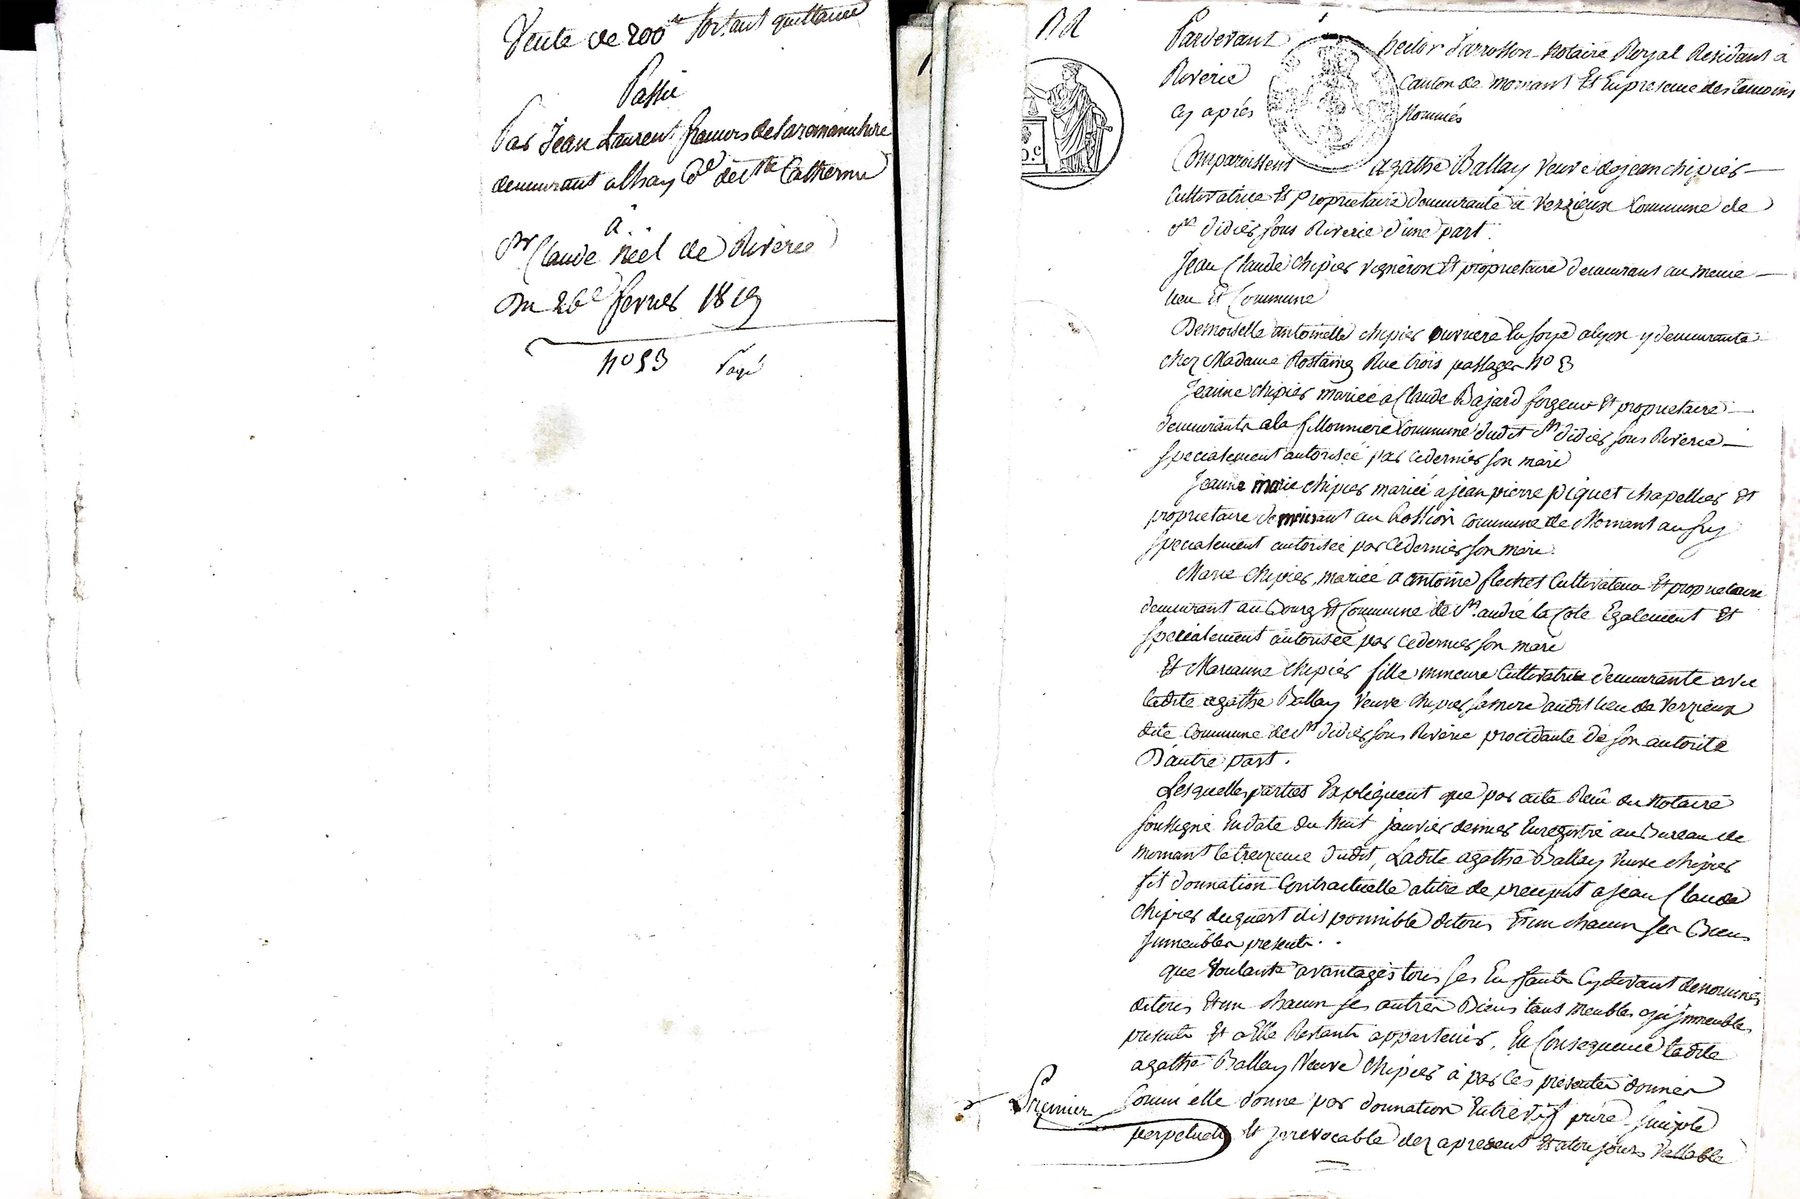 Vente de 200 fr portant quittance
Passée
Par Jean Laurent francois
demeurant a lhay Cne de Ste Catherine
à
Sr Claude Néel de Riverie
Du 26e fevrier 1819
No 53 Payé
Pardevant hector Notaire Royal Residant à
Riverie Canton de mornant Et En presence des temoins
Cy après Nommés
Comparoissent agathe Ballay Veuve de jean chipier
Cultivatrice Et proprietaire demeurante à Verzieux Commune de
St didier sous Riverie d'une part.
Jean Claude chipier vigneron Et proprietaire demeurant au meme
lieu Et Commune
Demoiselle antoinette chipier ouvriere En soye a lyon y demeurante
chez Madame Rostaing Rue trois passages No 3
Jeanne chipier mariée a Claude Bajard forgeur Et proprietaire
demeurante a la fillonniere Commune dudit St didier sous Riverie
specialement autorisée par ce dernier son mari
Jeanne marie chipier mariée a jean pierre piquet chapellier Et
proprietaire demeurant au Rossion Commune de Mornant aussy
specialement autorisée par ce dernier son mari
Marie chipier, mariée a antoine flechet Cultivateur Et proprietaire
demeurant au Bourg Et Commune de St andré la Cote Egalement Et
specialement autorisée par ce dernier son mari
Et Marianne chipier fille mineure Cultivatrice demeurante avec
ladite agathe Ballay Veuve chipier sa mere audit lieu de Verzieux
dite Commune de St didier sous Riverie procedante de son autorité
D'autre part.
Lesquelles parties Expliquent que par acte Recu du Notaire
soussigné En date du huit janvier dernier Enregistré au Bureau de
mornant le treizieme dudit, Ladite agathe Ballay Veuve chipier
fit donnation Contractuelle a titre de preciput a jean Claude
chipier du quart disponnible de tous Et un chacun ses Biens
Jmmeubles presents..
que Voulante avantager tous ses Enfants Cy devant denommés
de tous Et un chacun ses autres Biens tant meubles que jmmeubles
presents Et a Elle Restants appartenir, En Consequence ladite
agathe Ballay Veuve chipier à par ces presentes donner
Comm'elle donne par donnation Entrevifs pure simple
Premier
perpetuelle Et jrrevocable des apresent Et a toujours Vallable